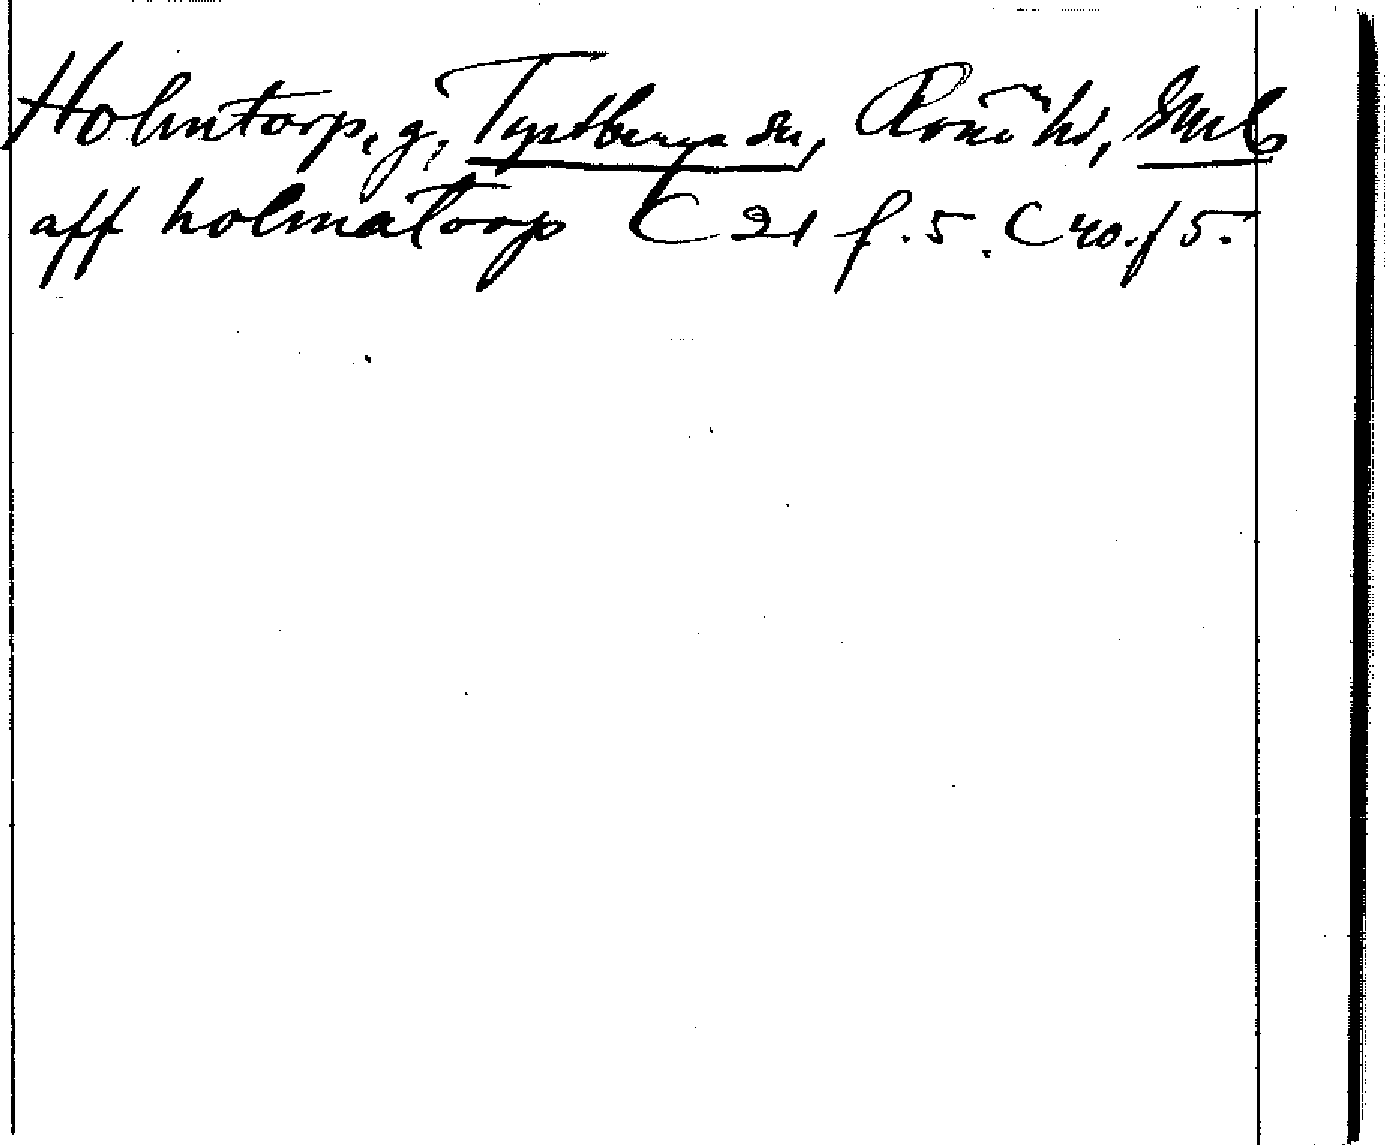 Holmtorp, g, Tystberga sn, Rönö hd, Smld
aff holmatorp C 21 f. 5. C 40. f 5.